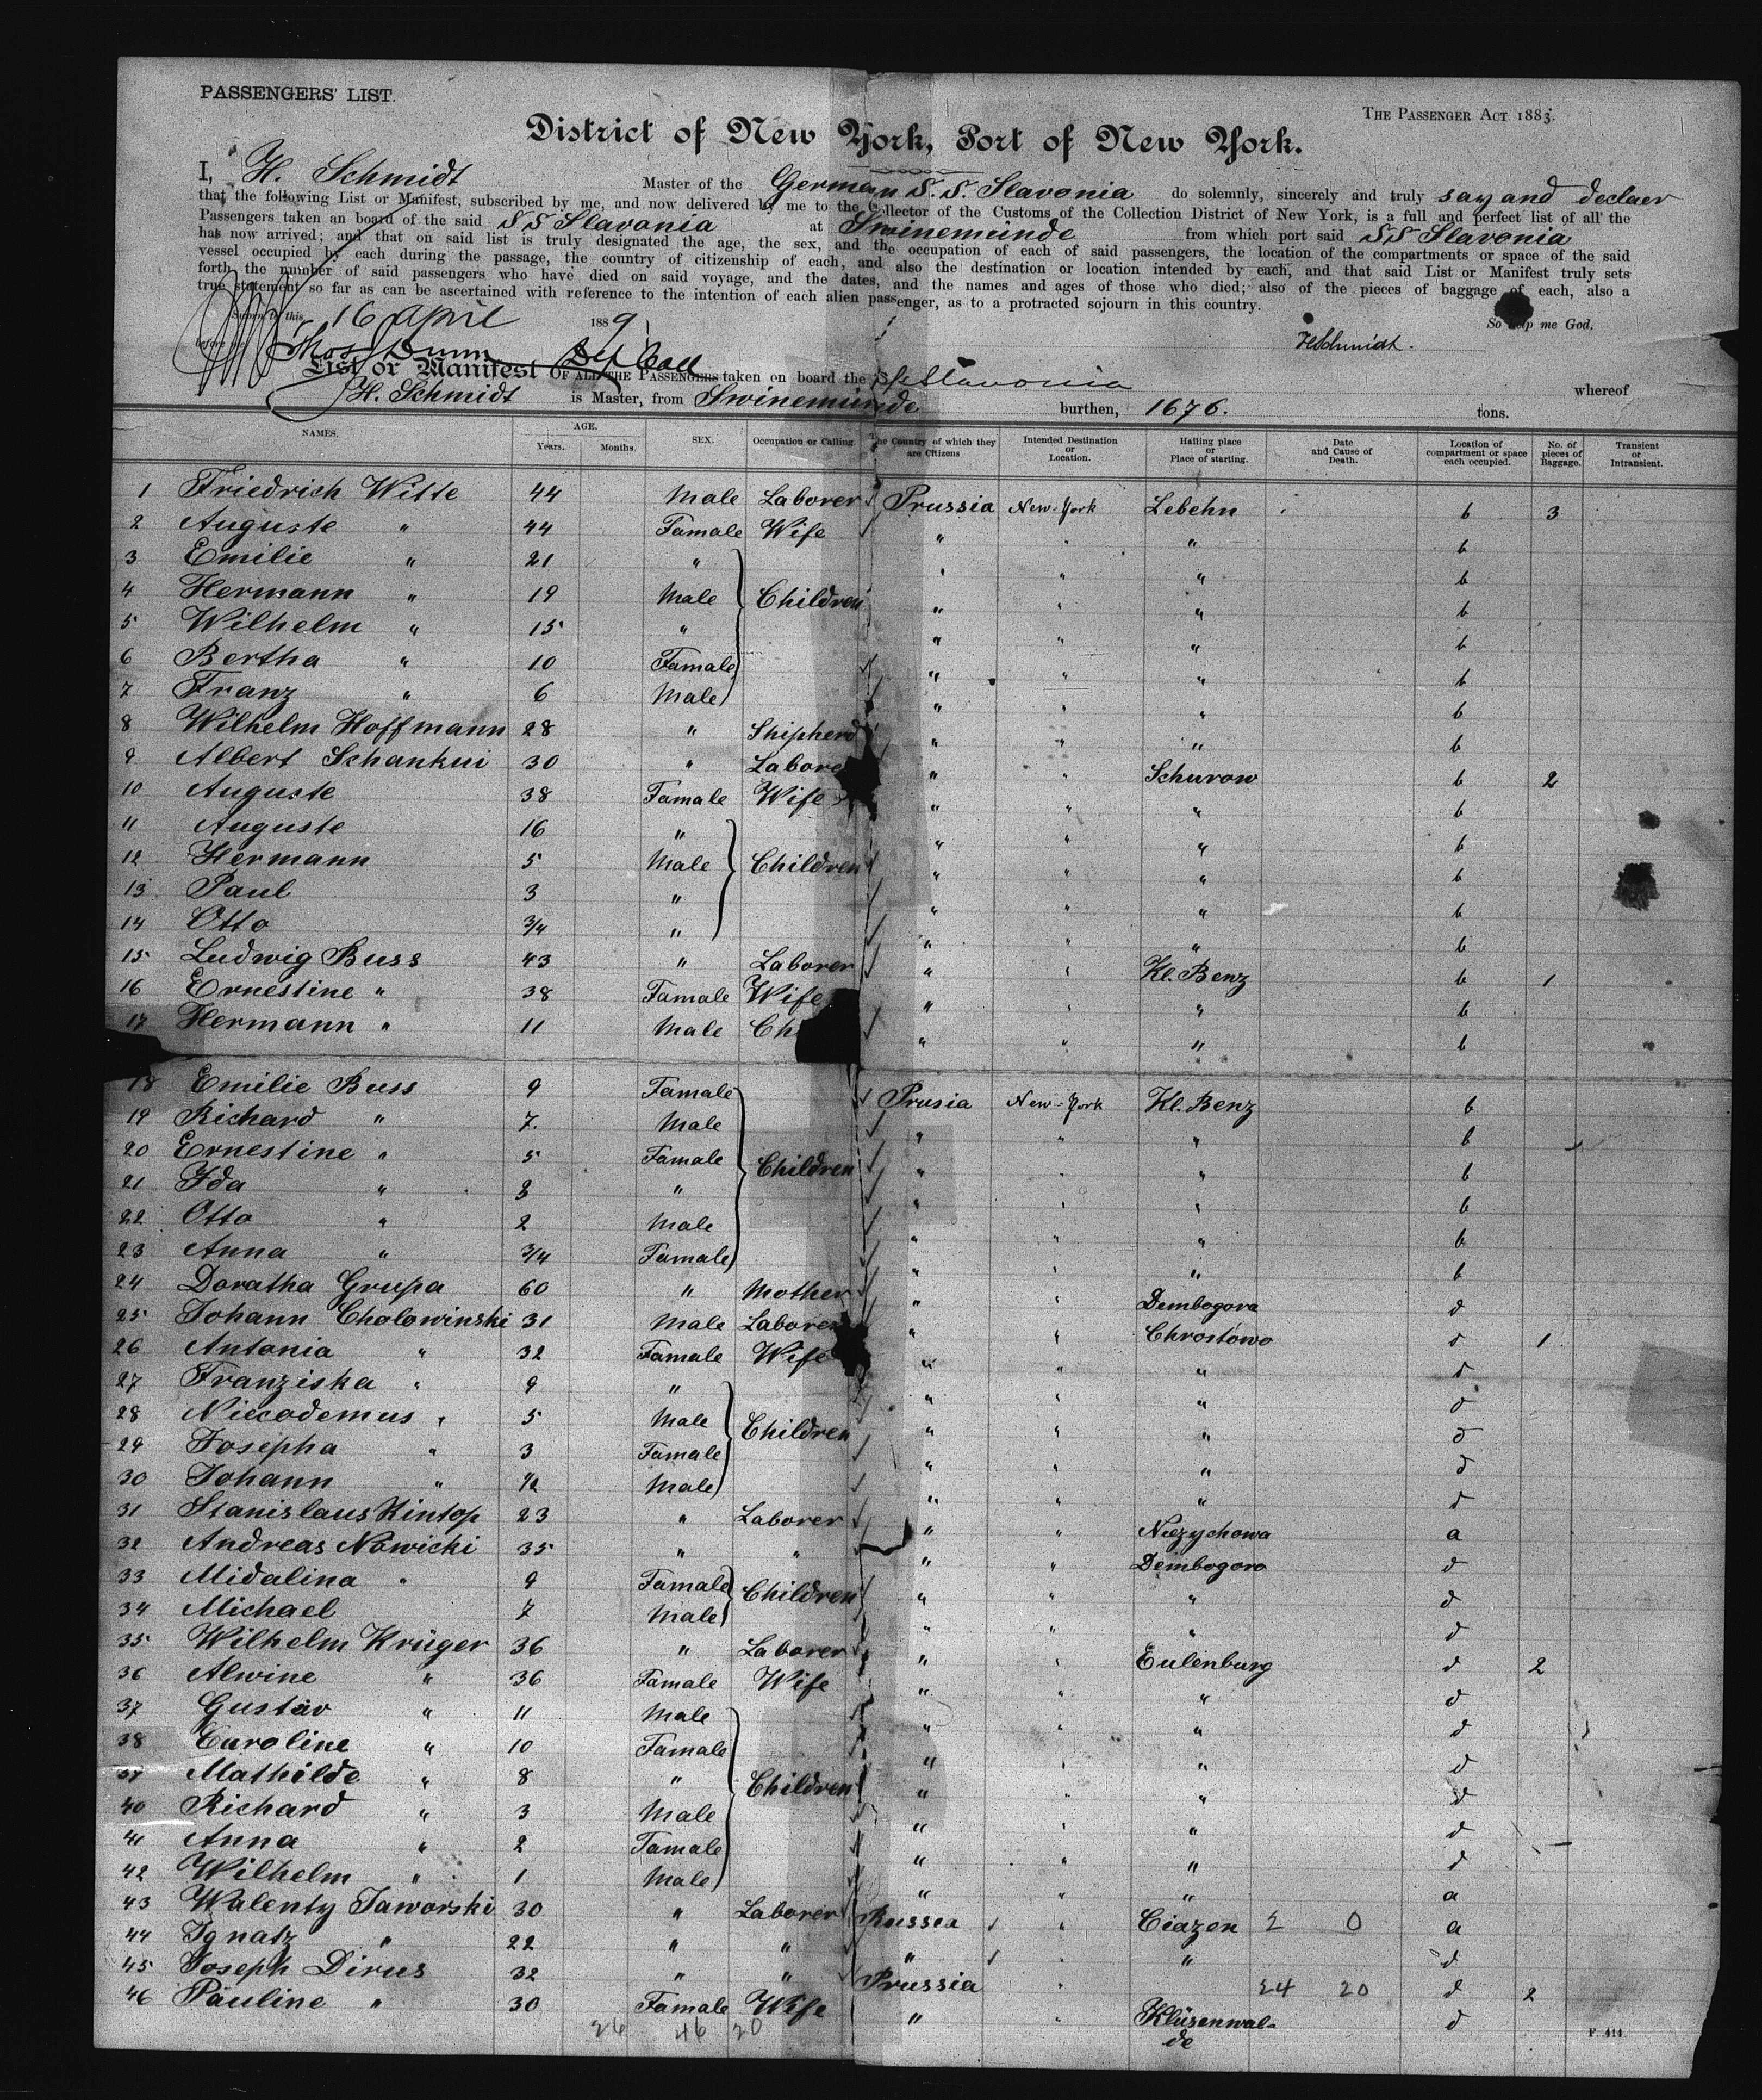 PASSENGERS' LIST.
THE PASSENGER ACT 1883.
District of New York, Port of New York.
I, H. Schmidt Master of the German S.S. Slavonia do solemnly, sincerely and truly say and declaer
that the following List or Manifest, subscribed by me, and now delivered by me to the Collector of the Customs of the Collection District of New York, is a full and perfect list of all the
Passengers taken on board of the said SS Slavonia at Swinemünde from which port said SS Slavonia
has now arrived; and that on said list is truly designated the age, the sex, and the occupation of each of said passengers, the location of the compartments or space of the said
vessel occupied by each during the passage, the country of citizenship of each, and also the destination or location intended by each, and that said List or Manifest truly sets
forth the number of said passengers who have died on said voyage, and the dates, and the names and ages of those who died; also of the pieces of baggage of each, also a
true statement so far as can be ascertained with reference to the intention of each alien passenger, as to a protracted sojourn in this country.
Sworn to this 16 April 1889 So help me God,
before me Thos Dunn Dep Coll HSchmidt.
List or Manifest OF ALL THE PASSENGERS taken on board the SS Slavonia whereof
H. Schmidt is Master, from Swinemünde burthen, 1676. tons.
NAMES. AGE. Years. Months. SEX. Occupation or Calling. The Country of which they are Citizens Intended Destination or Location. Hailing place or Place of starting. Date and Cause of Death. Location of compartment or space each occupied. No. of pieces of Baggage. Transient or Intransient.
1 Friedrich Witte 44 Male Laborer Prussia New-York Lebehn b 3
2 Auguste " 44 Famale Wife " " " b
3 Emilie " 21 " " " " b
4 Hermann " 19 Male Children " " " b
5 Wilhelm " 15 " " " " b
6 Bertha " 10 Famale " " " b
7 Franz " 6 Male " " " b
8 Wilhelm Hoffmann 28 " Shipherd " " " b
9 Albert Schankui 30 " Laborer " " Schurow b 2
10 Auguste 38 Famale Wife " " " b
11 Auguste 16 " " " " b
12 Hermann 5 Male Children " " " b
13 Paul 3 " " " " b
14 Otto 3/4 " " " " b
15 Ludwig Buss 43 " Laborer " " Kl. Benz b 1
16 Ernestine " 38 Famale Wife " " " b
17 Hermann " 11 Male Ch " " " b
18 Emilie Buss 9 Famale Prusia New-York Kl. Benz b
19 Richard " 7. Male " " " b
20 Ernestine " 5 Famale Children " " " b
21 Ida " 3 " " " " b
22 Otto " 2 Male " " " b
23 Anna " 3/4 Famale " " " b
24 Doratha Grupa 60 " Mother " " Dembogora d
25 Johann Cholowinski 31 Male Laborer " " Chrostowo d 1
26 Antonia " 32 Famale Wife " " " d
27 Franziska " 9 " " " " d
28 Niecodemus " 5 Male Children " " " d
29 Josepha " 3 Famale " " " d
30 Johann " 1/2 Male " " " d
31 Stanislaus Kintop 23 " Laborer " " Niezychowa a
32 Andreas Nowicki 35 " " " " Dembogoro d
33 Midalina " 9 Famale Children " " " d
34 Michael 7 Male " " " d
35 Wilhelm Krüger 36 " Laborer " " Eulenburg d 2
36 Alwine " 36 Famale Wife " " " d
37 Gustav " 11 Male " " " d
38 Caroline " 10 Famale " " " d
39 Mathilde " 8 " Children " " " d
40 Richard " 3 Male " " " d
41 Anna " 2 Famale " " " d
42 Wilhelm " 1 Male " " " a
43 Walenty Jaworski 30 " Laborer Russea " Ciazen 2 0 a
44 Ignatz " 22 " " " " " d
45 Joseph Dirus 32 " " Prussia " 24 20 d 2
46 Pauline " 30 Famale Wife " " Klüsenwalde d
26 46 20
F. 414